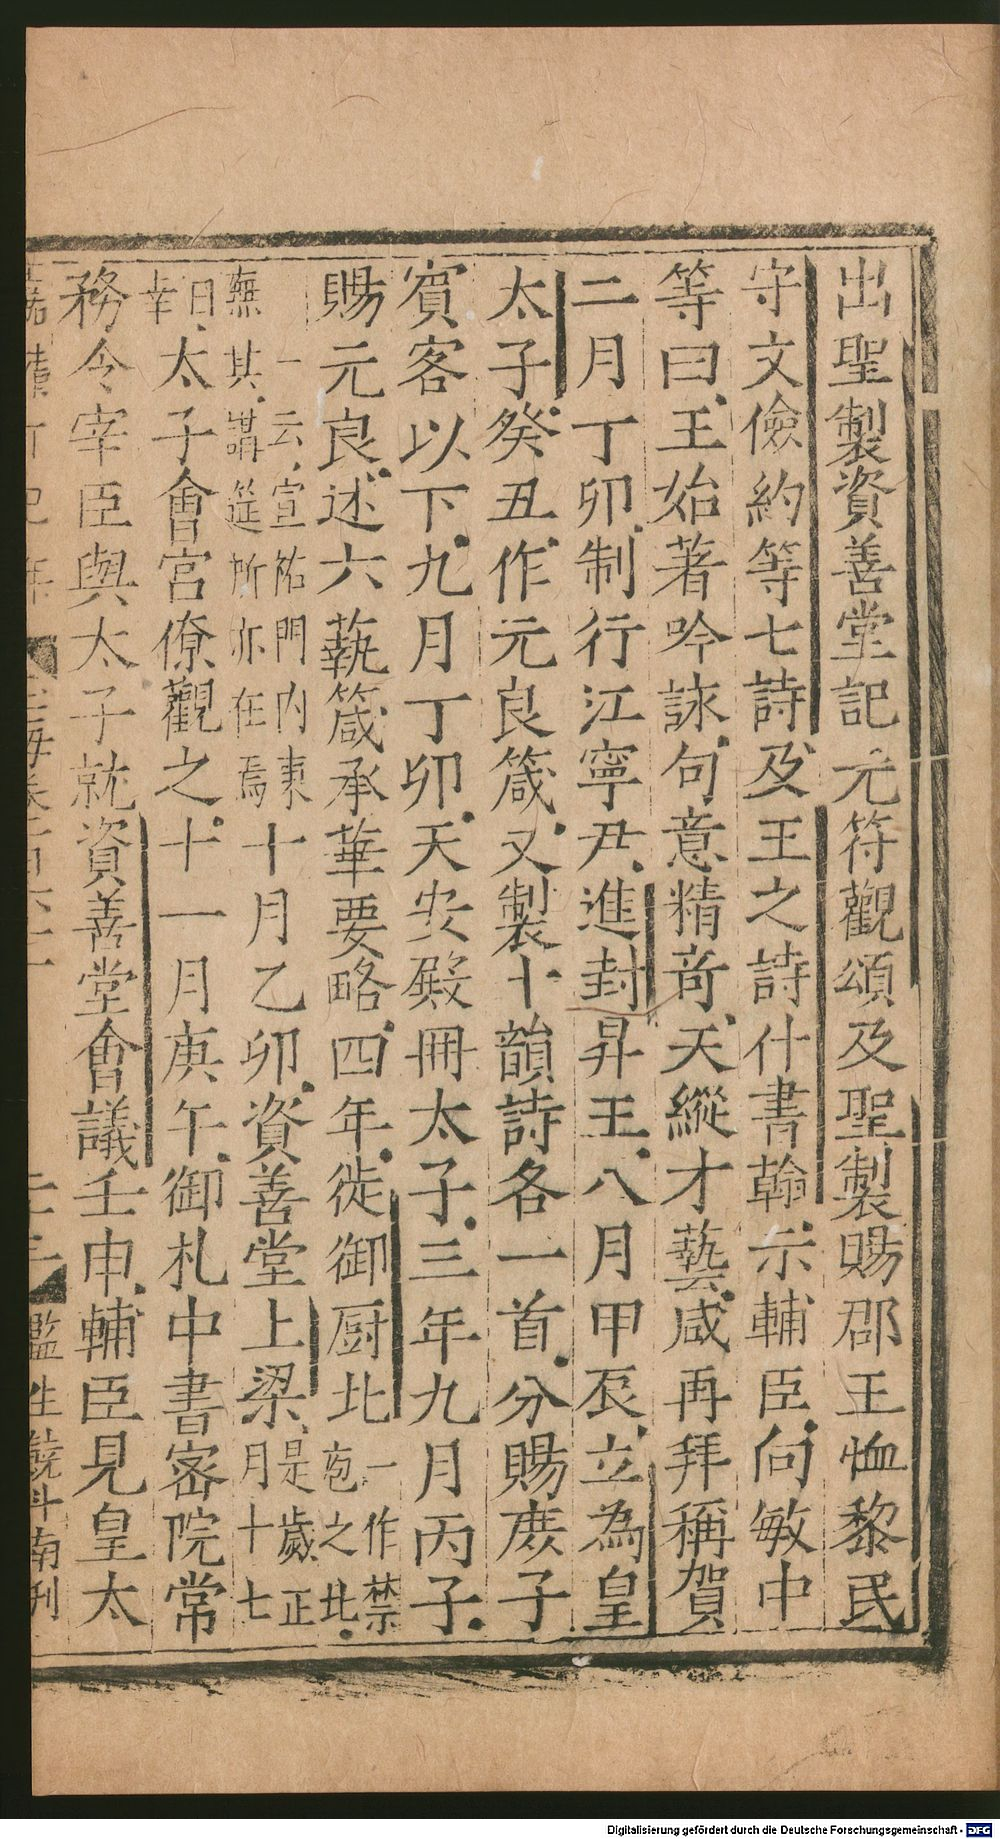 出聖製資善堂記元符觀頌及聖製賜郡王恤黎民
守文儉約等七詩及王之詩什書翰示輔臣向敏中
等曰王始著吟詠句意精奇天縱才藝咸再拜稱賀
二月丁卯制行江寧尹進封昇王八月甲辰立為皇
太子癸丑作元良箴又製十韻詩各一首分賜庶子
賓客以下九月丁卯天安殿冊太子三年九月丙子
賜元良述六蓺箴承華要略四年徙御厨北一作禁庖之北
一云宣祐門内東廡其講筵所亦在焉十月乙卯資善堂上梁是歲正月十七
日幸太子會宫僚觀之十一月庚午御札中書密院常
務令宰臣與太子就資善堂會議壬申輔臣見皇太
監生 斗南刊
Digitalisierung gefördert durch die Deutsche Forschungsgemeinschaft - DFG